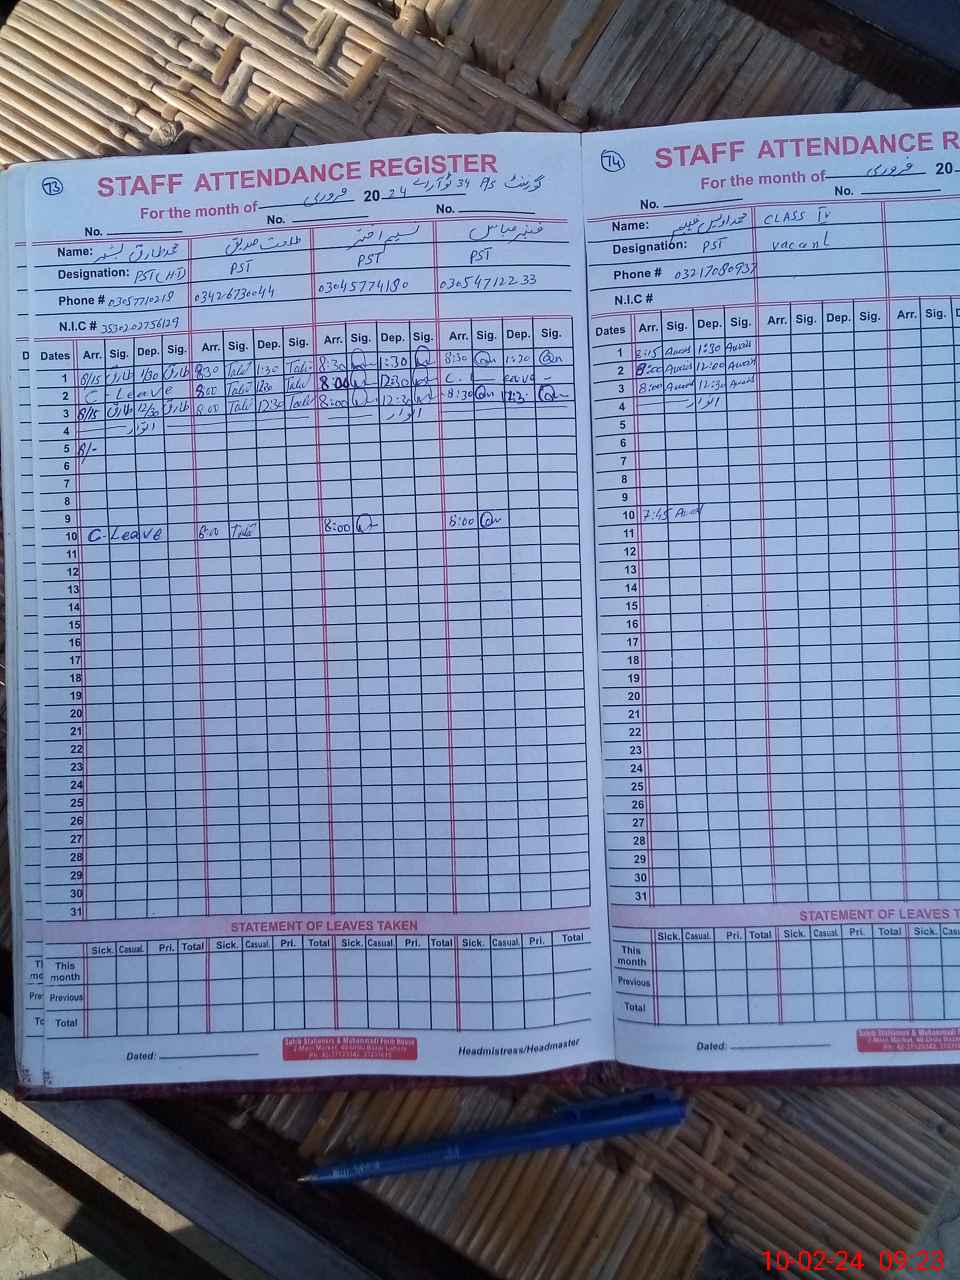 73
STAFF ATTENDANCE REGISTER
For the month of فروری 20 24 گورنمنٹ P/S 34
No. No. No.
Name: محمد طارق بشیر طلعت صدیق نسیم اختر
Designation: PST (H.T) PST PST PST
Phone # 03057710219 03426730044 03045774180 03054712233
N.I.C # 3530202756129
Dates Arr. Sig. Dep. Sig. Arr. Sig. Dep. Sig. Arr. Sig. Dep. Sig. Arr. Sig. Dep. Sig.
1 8/15 طارق 1/30 طارق 8:30 1:30 8:30 1:30 8:30 1:30
2 C - Leave 8:00 12:30 8:00 12:30 C. Leave -
3 8/15 طارق 12/30 طارق 8:00 12:30 8:00 12:30 8:30 12:3
4 اتوار اتوار
5 8/-
6
7
8
9
10 C- Leave 8:00 8:00 8:00
11
12
13
14
15
16
17
18
19
20
21
22
23
24
25
26
27
28
29
30
31
STATEMENT OF LEAVES TAKEN
Sick. Casual. Pri. Total Sick. Casual. Pri. Total Sick. Casual. Pri. Total Sick. Casual. Pri. Total
This month
Previous
Total
Dated: Headmistress/Headmaster
Sahib Stationers & Muhammadi Form House
2-Main Market, 40-Urdu Bazar Lahore
74
STAFF ATTENDANCE R
For the month of فروری 20
No. No.
Name: CLASS IV
Designation: PST vacant
Phone # 03217080937
N.I.C #
Dates Arr. Sig. Dep. Sig. Arr. Sig. Dep. Sig. Arr. Sig.
1 8:15 Awais 1:30 Awais
2 8:00 Awais 12:00 Awais
3 8:00 Awais 12:30 Awais
4 اتوار
5
6
7
8
9
10 7:45 Awais
11
12
13
14
15
16
17
18
19
20
21
22
23
24
25
26
27
28
29
30
31
STATEMENT OF LEAVES T
Sick. Casual. Pri. Total Sick. Casual. Pri. Total Sick. Casual.
This month
Previous
Total
Dated:
Sahib Stationers & Muhammadi F
2-Main Market, 40-Urdu Baza
10-02-24 09:23